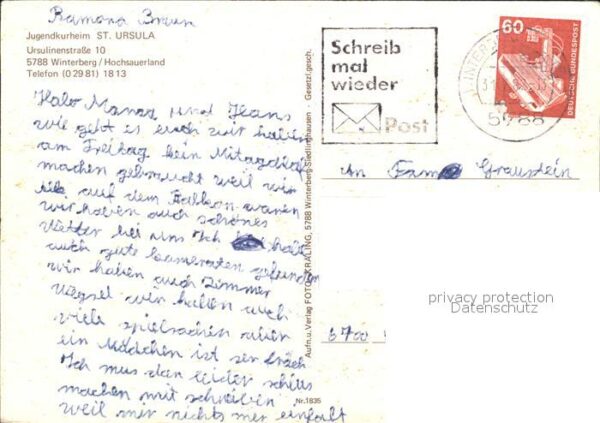 Ramona Braun
Jugendkurheim ST. URSULA
Ursulinenstraße 10
5788 Winterberg / Hochsauerland
Telefon (0 29 81) 18 13
Halo Mama und Hans
wie geht es euch wir haben
am Freitag kein Mitagschlaf
machen gebraucht weil wir
auf dem Balkon waren
wir haben auch schönes
Wetter bei uns Ich habe
auch gute kameraten gefunden
wir haben auch Zimmer
wegsel wir haben auch
viele spielsachen aber
ein Mädchen ist ser frech
Ich mus dan leider schlus
machen mit schreiben
weil mir nichts mer einfält
Aufn. u. Verlag FOTO GRALING, 5788 Winterberg-Siedlinghausen · Gesetzl. gesch.
Nr. 1835
Schreib
mal
wieder
Post
WINTERB
5788
60
DEUTSCHE BUNDESPOST
An Fam Graustein
privacy protection
Datenschutz
6700